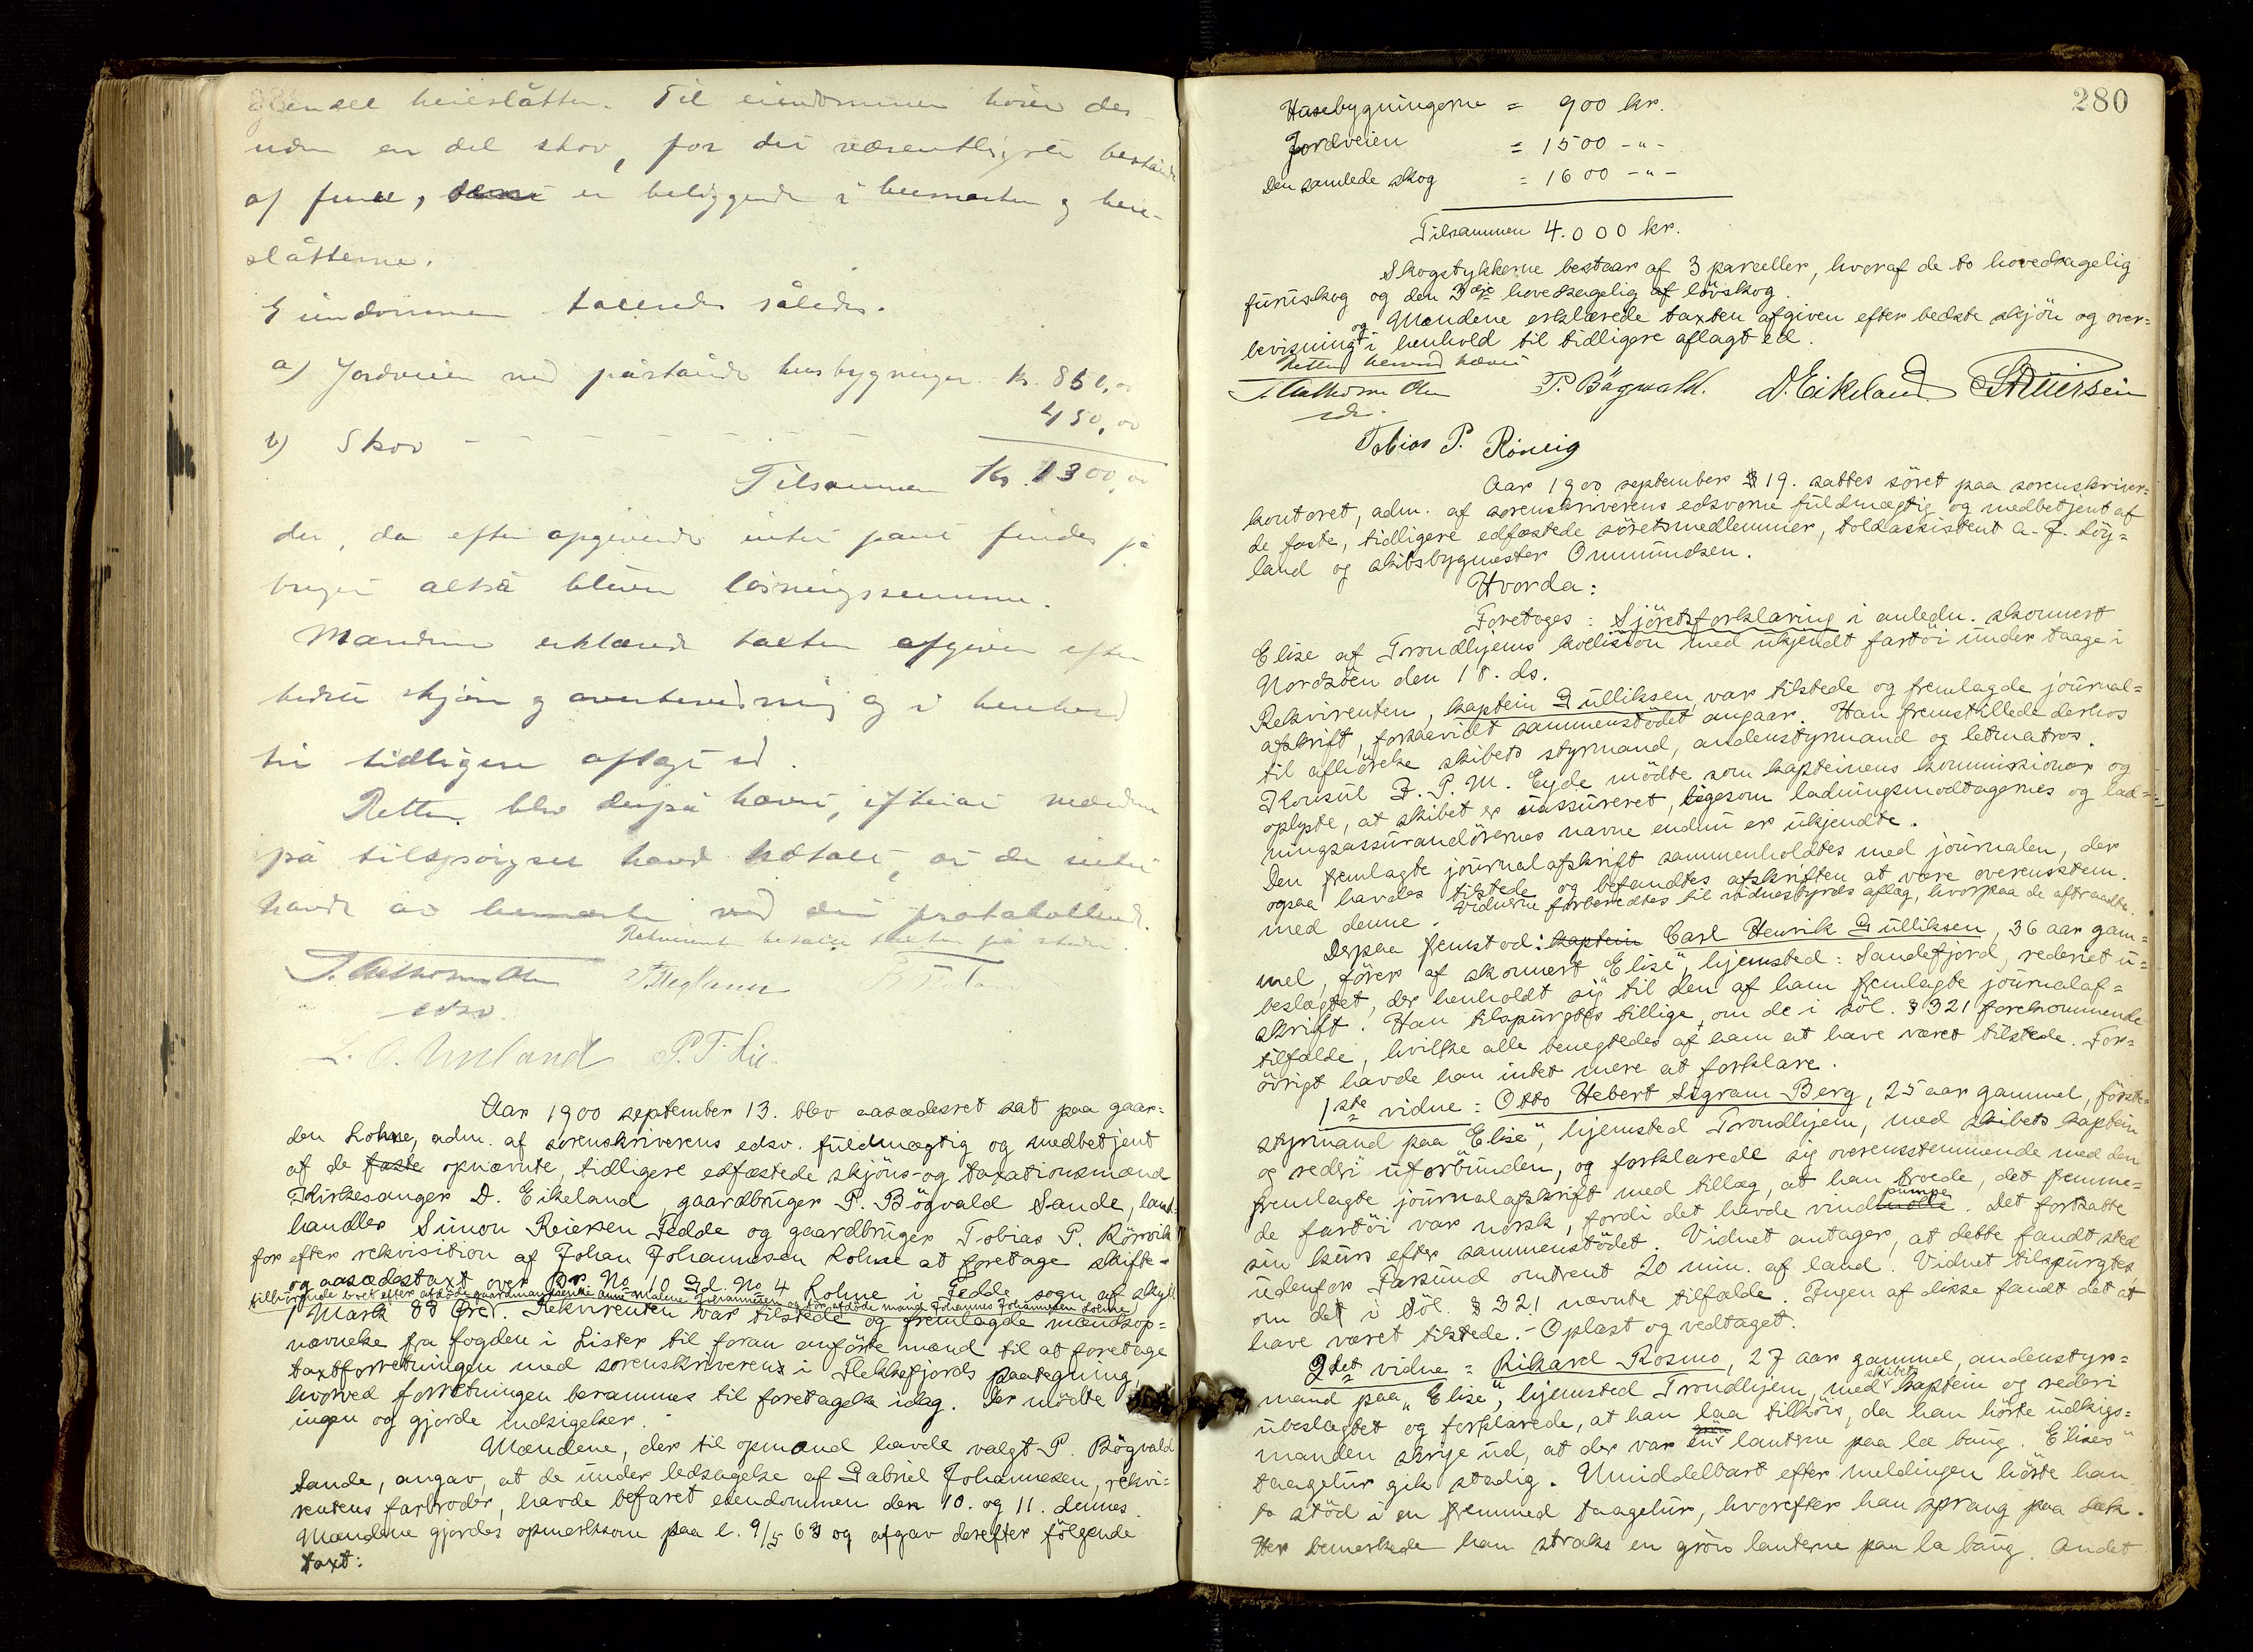 heieslåtter. Til eiendommen hører des-
uden en del skov, for det væsentligste bestående
af furue, er beliggende i heemarken og heie-
slåtterne.
Eiendommen taxeredes således.
a) Jordveien med påstående husbygninger Kr. 850,00
b) Skov - - - - - - - 450,00
Tilsammen Kr. 1300,00
der, da efter opgivende intet pant findes på
bruget altså bliver løsningssummen.
Mændene erklærede taxten afgiven efter
bedste skjøn og overbevisning og i henhold
til tidligere aflagt ed.
Retten blev derpå hævet, efterat mændene
på tilspørgsel havde udtalt, at de intet
havde at bemærke ved det protokollerede.
Rekvirenten betalte taxten på stedet.
edsv.
P. T. Lie.
Aar 1900 september 13. blev aasædesret sat paa gaar=
den Lohne, adm. af sorenskriverens edsv. fuldmægtig og medbetjent
af de faste opnævnte, tidligere edfæstede skjöns- og taxationsmænd
Kirkesanger D. Eikeland, gaardbruger P. Bögvald Sande, land-
handler Simon Reiersen Fedde og gaardbruger Tobias P. Rörvik
for efter rekvisition af Johan Johannesen Lohne at foretage skifte-
og aasædestaxt over Br. No 10 Gd. No 4 Lohne i Fedde sogn af skyld
tilhørende boet efter afdöde gaardmandsenke Anne Malene Johannesen og för afdöde mand Johannes Johannesen Lohne
1 Mark 88 Øre. Rekvirenten var tilstede og fremlagde mandsop=
nævnelse fra fogden i Lister til foran anførte mænd til at foretage
taxtforretningen med sorenskriverens i Flekkefjords paategning,
hvorved forretningen berammes til foretagelse idag. Der mödte
ingen og gjorde indsigelser.
Mændene, der til opmand havde valgt P. Bögvald
Sande, angav, at de under ledsagelse af Gabriel Johannesen, rekvi=
rentens farbroder, havde befaret eiendommen den 10. og 11. dennes.
Mændene gjordes opmerksom paa l. 9/5 63 og afgav derefter fölgende
taxt:
280
Husebygningerne = 900 kr.
Jordveien = 1500 -"-
Den samlede skog = 1600 -"-
Tilsammen 4.000 kr.
Skogstykkerne bestaar af 3 parceller, hvoraf de to hovedsagelig
furuskog og den 3dje hovedsagelig af lövskog.
Mændene erklærede taxten afgiven efter bedste skjön og over=
bevisning og i henhold til tidligere aflagt ed.
Retten derved hævet
edsv. P. Bögwald. D. Eikeland S. Reiersen
Tobias P. Rörvig
Aar 1900 september 19. sattes söret paa sorenskriver=
kontoret, adm. af sorenskriverens edsvorne fuldmægtig og medbetjent af
de faste, tidligere edfæstede söretsmedlemmer, toldassistent A. F. Löy=
land og skibsbygmester Ommundsen.
Hvorda:
Foretoges: Sjöretsforklaring i anledn. skonnert
Elise af Trondhjems kollision med ukjendt fartöi under taage i
Nordsöen den 18. ds.
Rekvirenten, kaptein Gulliksen, var tilstede og fremlagde journal=
afskrift, forsaavidt sammenstödet angaar. Han fremstillede derhos
til afhörelse skibets styrmand, andenstyrmand og letmatros.
Konsul J. P. M. Eyde mödte som kapteinens kommissionær og
oplyste, at skibet er uassureret, ligesom ladningsmodtagernes og lad=
ningsassurandörernes navne endnu er ukjendte.
Den fremlagte journalafskrift sammenholdtes med journalen, der
ogsaa havdes tilstede og befandtes afskriften at være overensstem.
med denne. Vidnerne forberedtes til vidnesbyrds aflæg, hvorpaa de aftraadte.
Derpaa fremstod: kaptein Carl Henrik Gulliksen, 36 aar gam=
mel, förer af skonnert "Elise", hjemsted: Sandefjord, rederiet u=
beslægtet, der henholdt sig til den af ham fremlagte journalaf=
skrift. Han tilspurgtes tillige, om de i söl. § 321 forekommende
tilfælde, hvilke alle benegtedes af ham at have været tilstede. For=
övrigt havde han intet mere at forklare.
1ste vidne: Otto Hebert Sigram Berg, 25 aar gammel, förste=
styrmand paa "Elise", hjemsted Trondhjem, med skibets kaptein
og rederi uforbunden, og forklarede sig overensstemmende med den
fremlagte journalafskrift med tillæg, at han troede, det fremme=
de fartöi var norsk, fordi det havde vindmölle pumpe. Det fortsatte
sin kurs efter sammenstödet. Vidnet antager, at dette fandt sted
udenfor Farsund omtrent 20 min. af land. Vidnet tilspurgtes,
om det i Söl. § 321 nævnte tilfælde. Ingen af disse fandt det at
have været tilstede. - Oplæst og vedtaget.
2det vidne = Rikard Rosmo, 27 aar gammel, andenstyr=
mand paa "Elise", hjemsted Trondhjem, med skibets kaptein og rederi
ubeslægtet og forklarede, at han laa tilköis, da han hörte udkigs=
manden skrige ud, at der var en lanterne paa læ baug. Elises"
taagelur gik stadig. Umiddelbart efter meldingen hörte han
to stöd i en fremmed taagelur, hvorefter han sprang paa dæk.
Her bemerkede han straks en grön lanterne paa læ baug. Andet